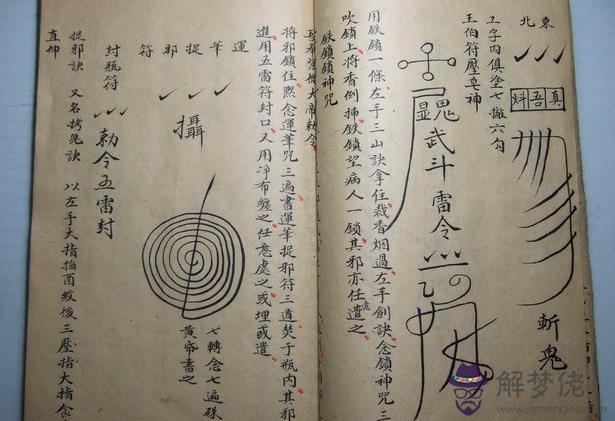 東北
真吾
斬鬼
工字內俱塗七撇六勾
王伯符壓皂神
武斗雷令
用鉄鎖一條左手三山訣拿住裁香烟過左手劍訣念鎖神咒三
吹鎖上將香倒掃鉄鎖望病人一鎖其邪亦任意遣之
鉄鎖鎖神咒
奉紫微大帝勅令
將邪鎖住黙念運筆咒三遍書運筆捉邪符三道焚于瓶內其邪
進用五雷符封口又用净布纏之任意處之或埋或遣
運筆捉邪符
攝
七轉念七遍硃
黄帝書之
封瓶符
勅令五雷封
捉邪訣 又名拷鬼訣 以左手大指掐酉紋後三壓指大指食
直伸
解梦佬